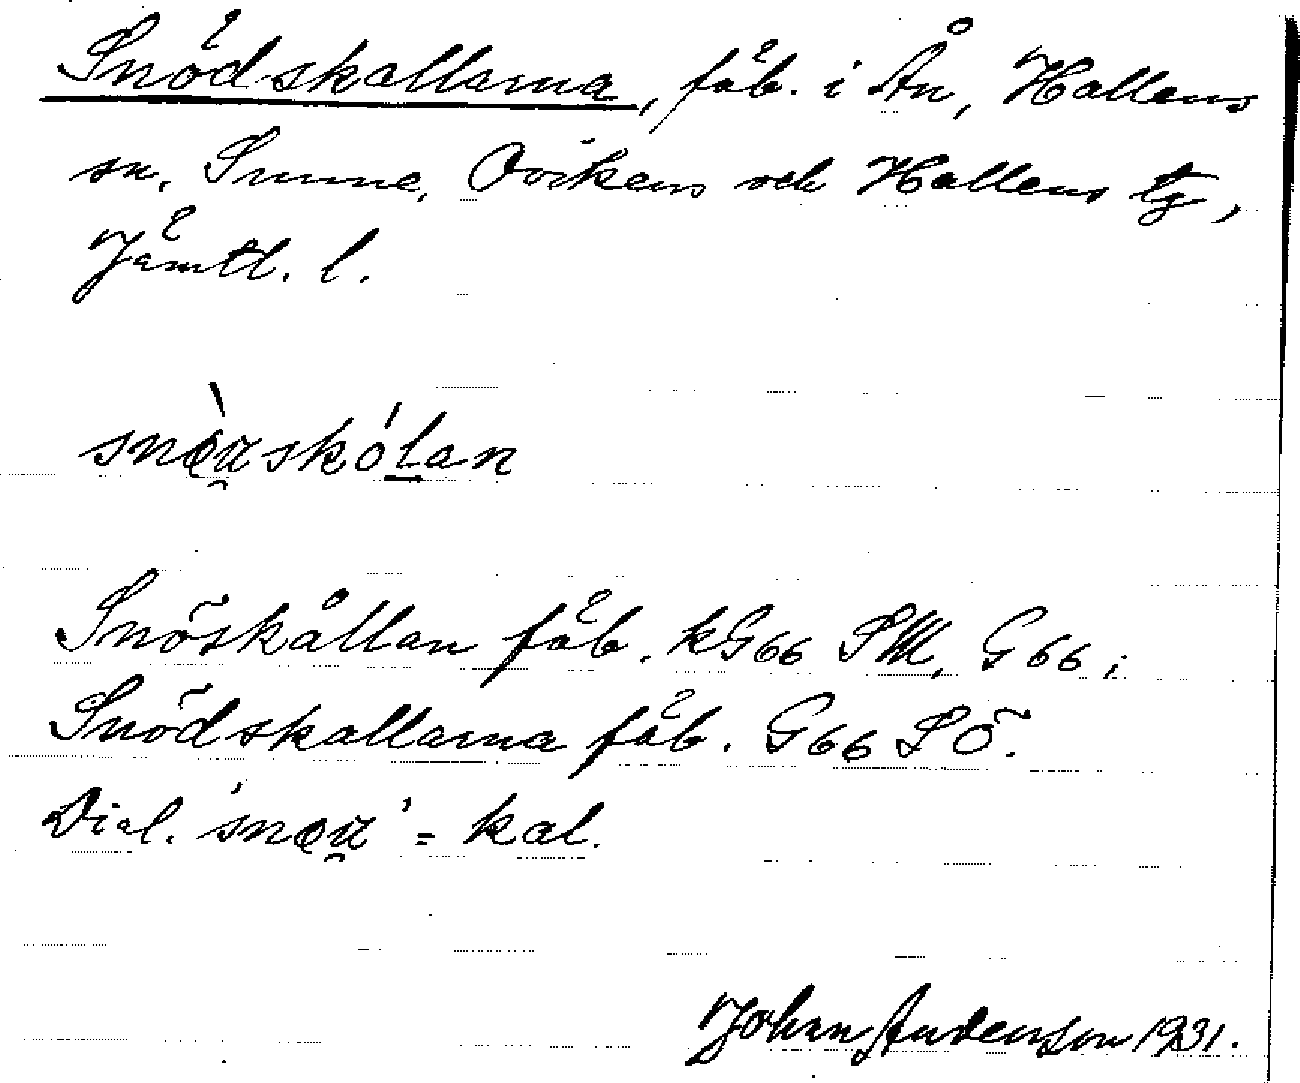 Snödskallarna, fäb. i Ån, Hallens
sn, Sunne, Ovikens och Hallens tg,
Jämtl. l.
Snöskållan fäb. kG66 SM, G66;
Snödskallarna fäb. G66 SÖ.
Dial. = kal.
John Andersson 1931.